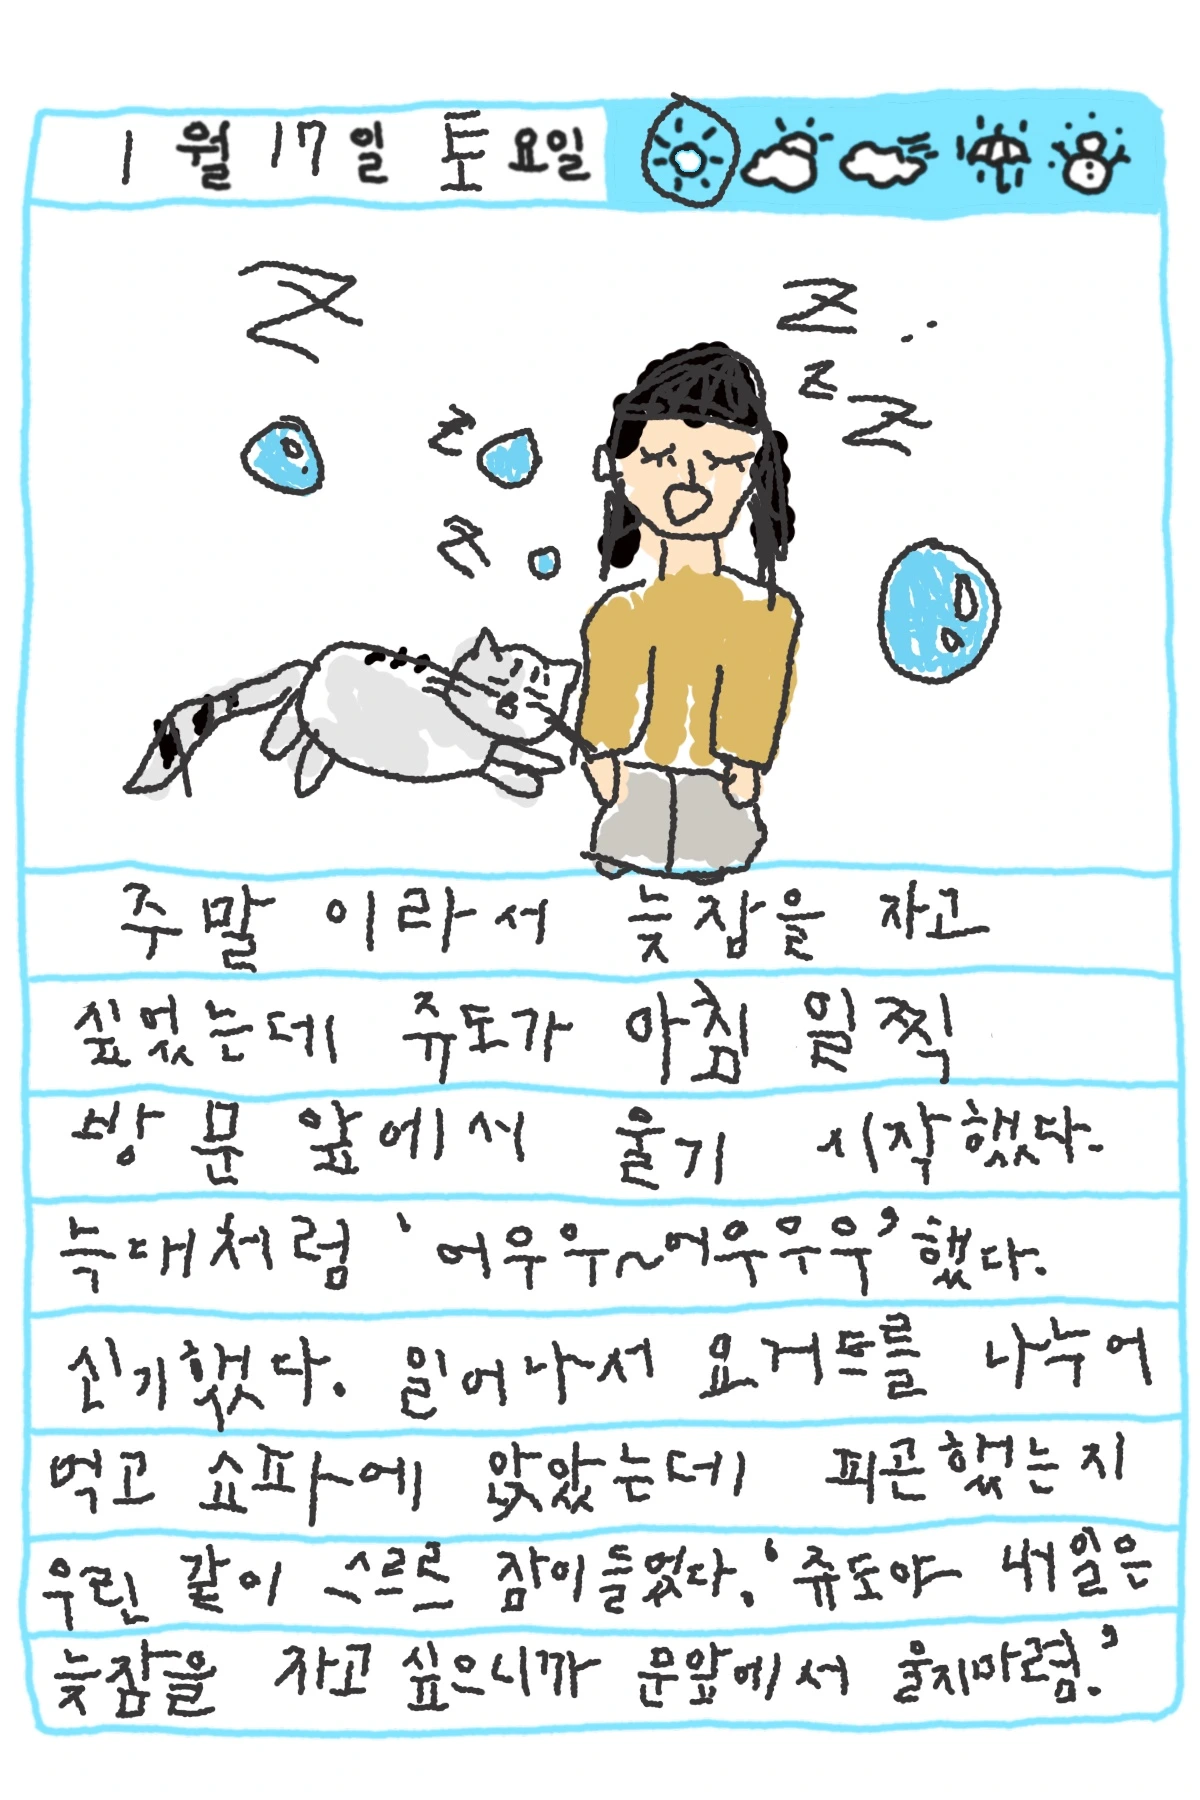 1월 17일 토요일
Z
Z
Z
Z
Z
Z
주말이라서 늦잠을 자고
싶었는데 쥬도가 아침 일찍
방문 앞에서 울기 시작했다.
늑대처럼 '어우우~어우우우' 했다.
신기했다. 일어나서 요거트를 나누어
먹고 쇼파에 앉았는데 피곤했는지
우린 같이 스르르 잠이들었다. '쥬도야 내일은
늦잠을 자고 싶으니까 문앞에서 울지마렴.'